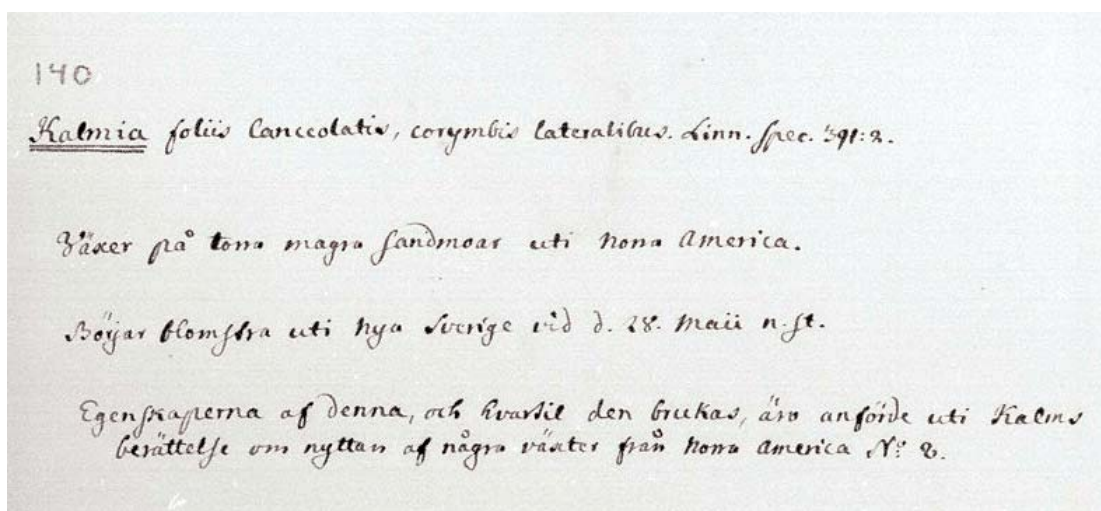 140
Kalmia foliis lanceolatis, corymbis lateralibus. Linn. spec. 391:2.
Växer på torra magra sandmoar uti Norra America.
Börjar blomstra uti Nya Sverige vid d. 28. Maii n. st.
Egenskaperna af denna, och hvartil den brukas, äro anförde uti Kalms
berättelse om nyttan af några växter från Norra America N:o 2.